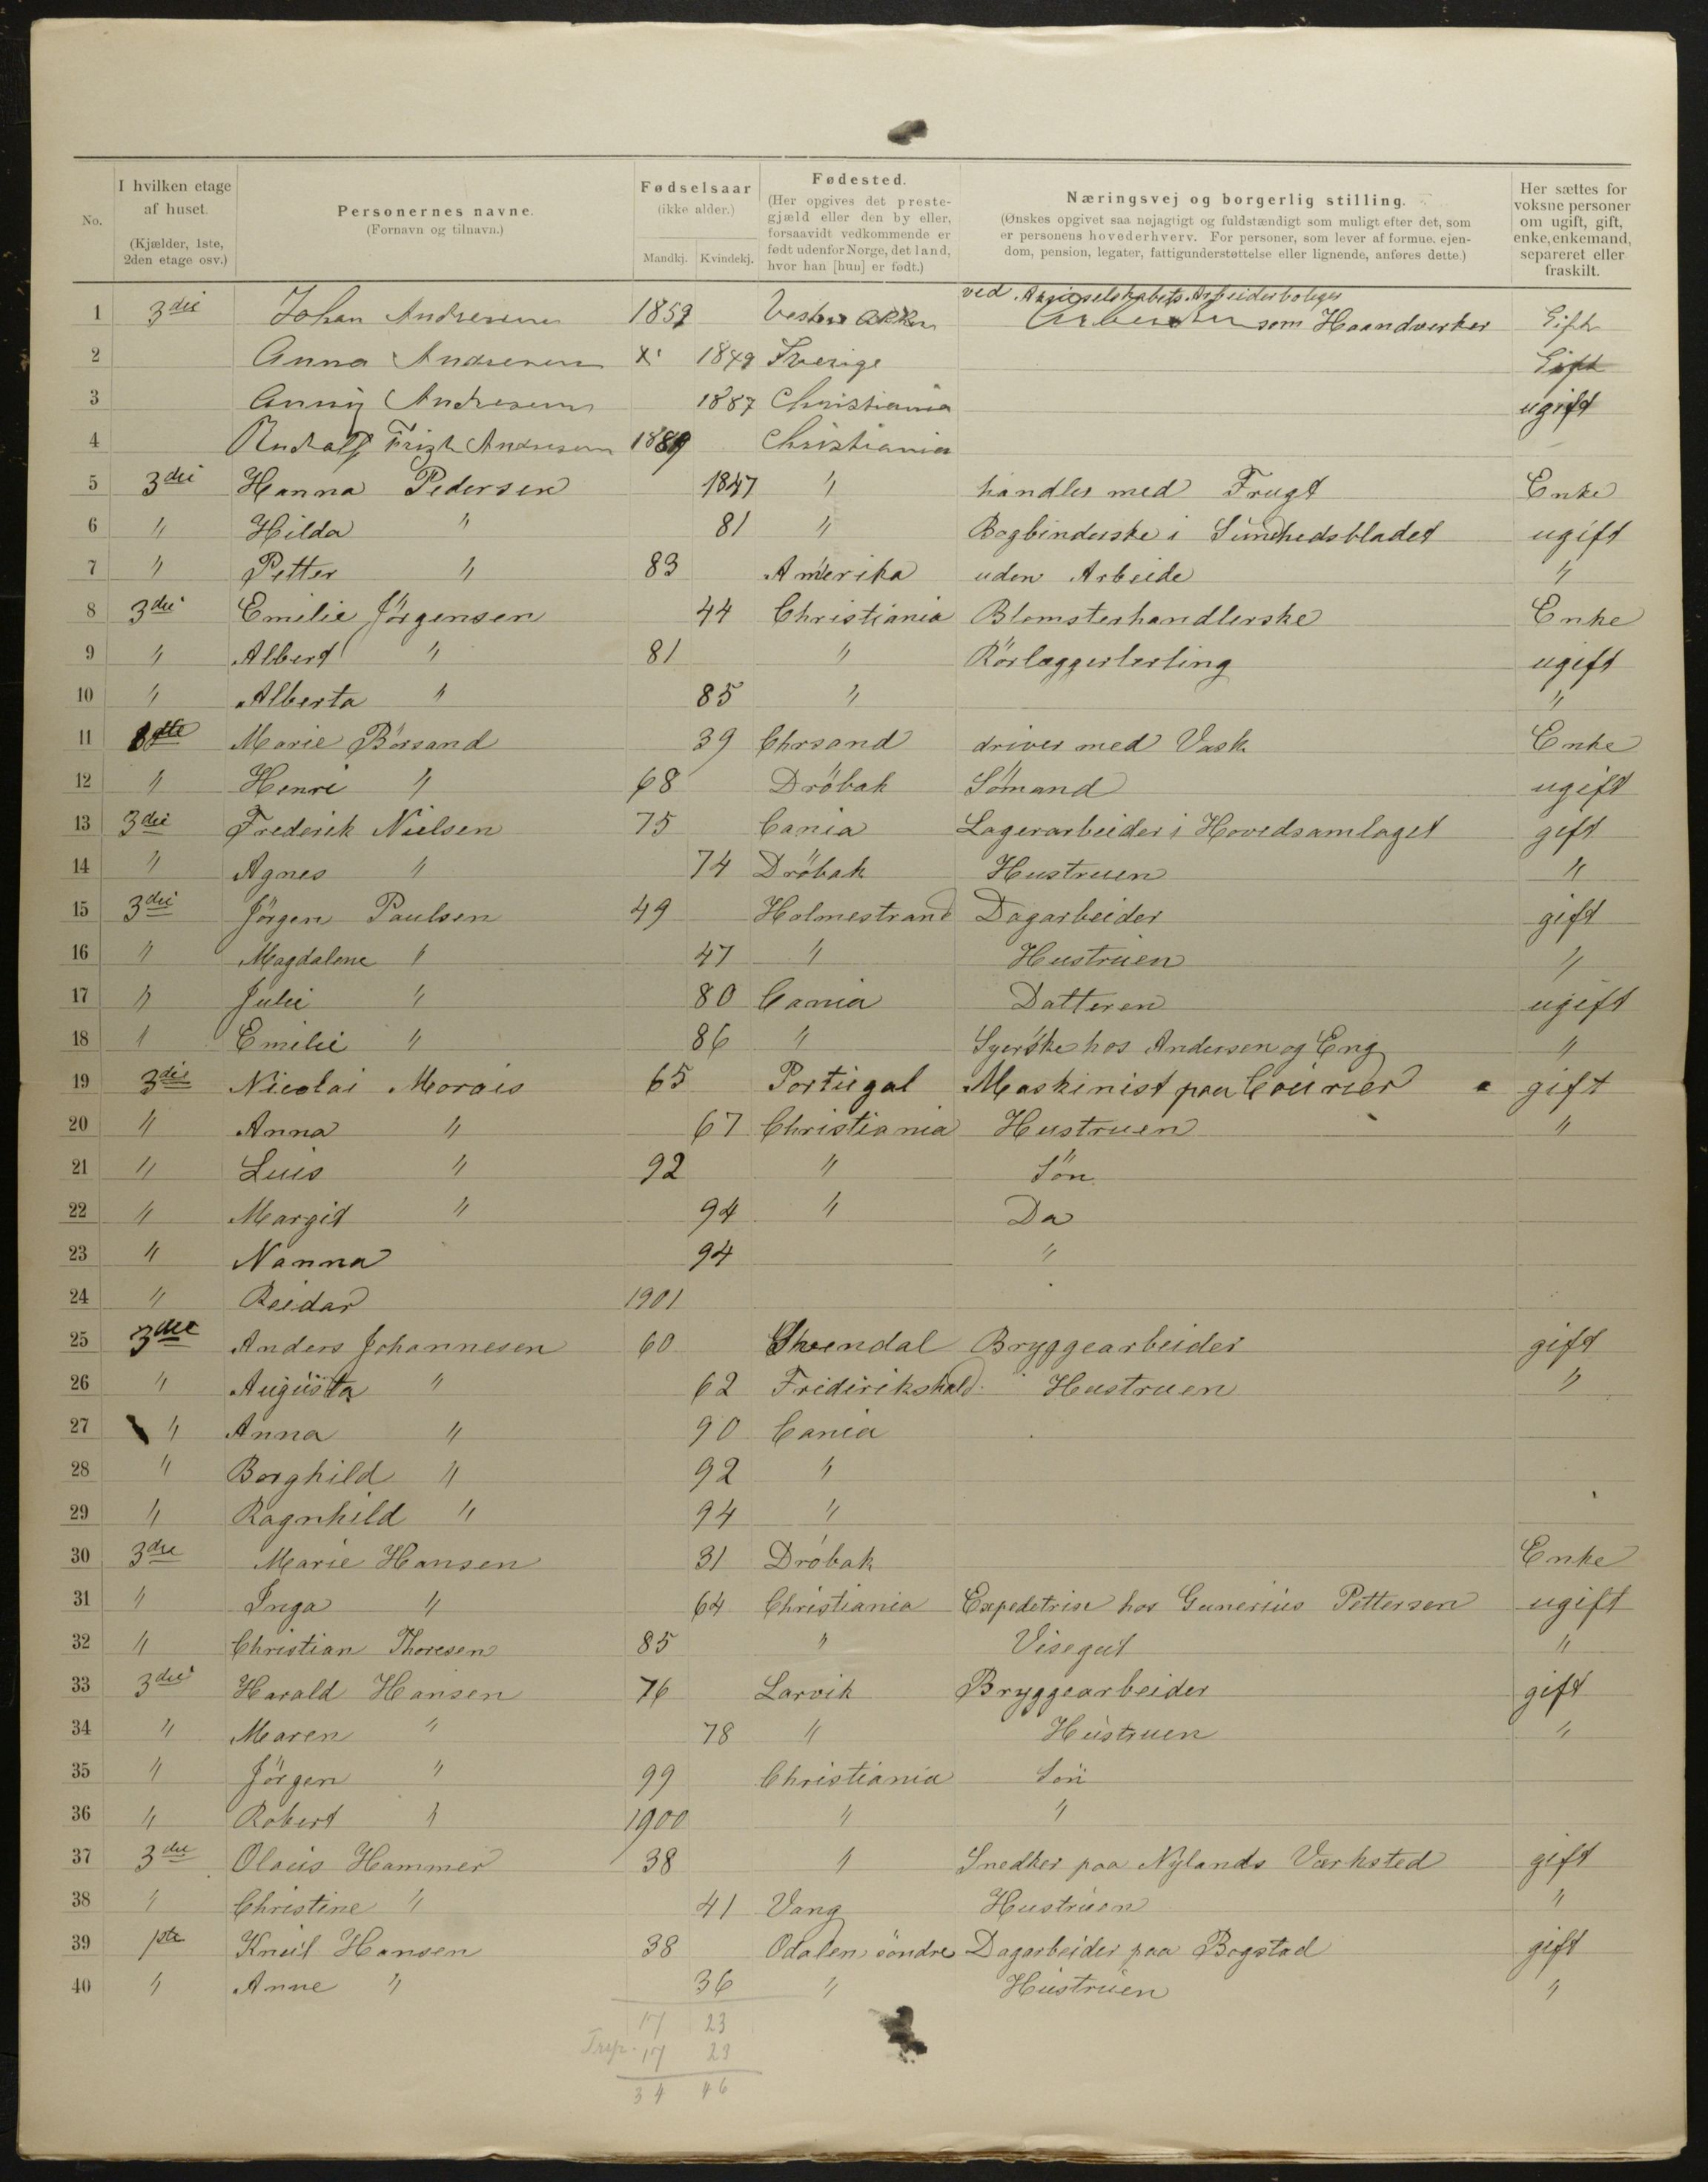 No. | I hvilken etage af huset. (Kjælder, 1ste, 2den etage osv.) | Personernes navne. (Fornavn og tilnavn.) | Fødselsaar (ikke alder.) Mandkj. Kvindekj. | Fødested. (Her opgives det prestegjæld eller den by eller, forsaavidt vedkommende er født udenfor Norge, det land, hvor han [hun] er født.) | Næringsvej og borgerlig stilling. (Ønskes opgivet saa nøjagtigt og fuldstændigt som muligt efter det, som er personens hovederhverv. For personer, som lever af formue, ejendom, pension, legater, fattigunderstøttelse eller lignende, anføres dette.) | Her sættes for voksne personer om ugift, gift, enke, enkemand, separeret eller fraskilt.
1 3die Johan Andresen 1859 Vestre Aker ved Akcieselskabets Arbeiderboliger Arbeider som Haandverker Gift
2 Anna Andresen x 1849 Sverige Gift
3 Anny Andresen 1887 Christiania ugift
4 Rudolf Frizh Andresen 1889 Christiania
5 3die Hanna Pedersen 1847 " handler med Frugt Enke
6 " Hilda " 81 " Bogbinderske i Sundhedsbladet ugift
7 " Petter " 83 Amerika uden Arbeide "
8 3die Emilie Jörgensen 44 Christiania Blomsterhandlerske Enke
9 " Albert " 81 " Rörlæggerlerling ugift
10 " Alberta " 85 " "
11 Marie Börsand 39 Chrsand driver med Vask Enke
12 " Henri " 68 Dröbak Sömand ugift
13 3die Frederik Nielsen 75 Cania Lagerarbeider i Hovedsamlaget gift
14 " Agnes " 74 Dröbak Hustruen "
15 3die Jörgen Paulsen 49 Holmestrand Dagarbeider gift
16 " Magdalene " 47 " Hustruen "
17 " Julie " 80 Cania Datteren ugift
18 " Emilie " 86 " Syerske hos Andersen og Eng "
19 3die Nicolai Morais 65 Portugal Maskinist paa Courier gift
20 " Anna " 67 Christiania Hustruen "
21 " Luis " 92 " Sön
22 " Margit " 94 " Da
23 " Nanna 94 "
24 " Reidar 1901
25 3die Anders Johannesen 60 Svendal Bryggearbeider gift
26 " Augusta " 62 Frideriikshald Hustruen "
27 " Anna " 90 Cania
28 " Borghild " 92 "
29 " Ragnhild " 94 "
30 3die Marie Hansen 31 Dröbak Enke
31 " Inga " 64 Christiania Expedetrise hos Gunerius Pettersen ugift
32 " Christian Thoresen 85 " Visegut "
33 3die Harald Hansen 76 Larvik Bryggearbeider gift
34 " Maren " 78 " Hustruen "
35 " Jörgen " 99 Christiania Sön
36 " Robert " 1900 " "
37 3die Olaus Hammer 38 " Snedker paa Nylands Værksted gift
38 " Christine " 41 Vang Hustruen "
39 1ste Knut Hansen 38 Odalen söndre Dagarbeider paa Bogstad gift
40 " Anne " 36 " Hustruen "
17 23
Trsp. 17 23
34 46